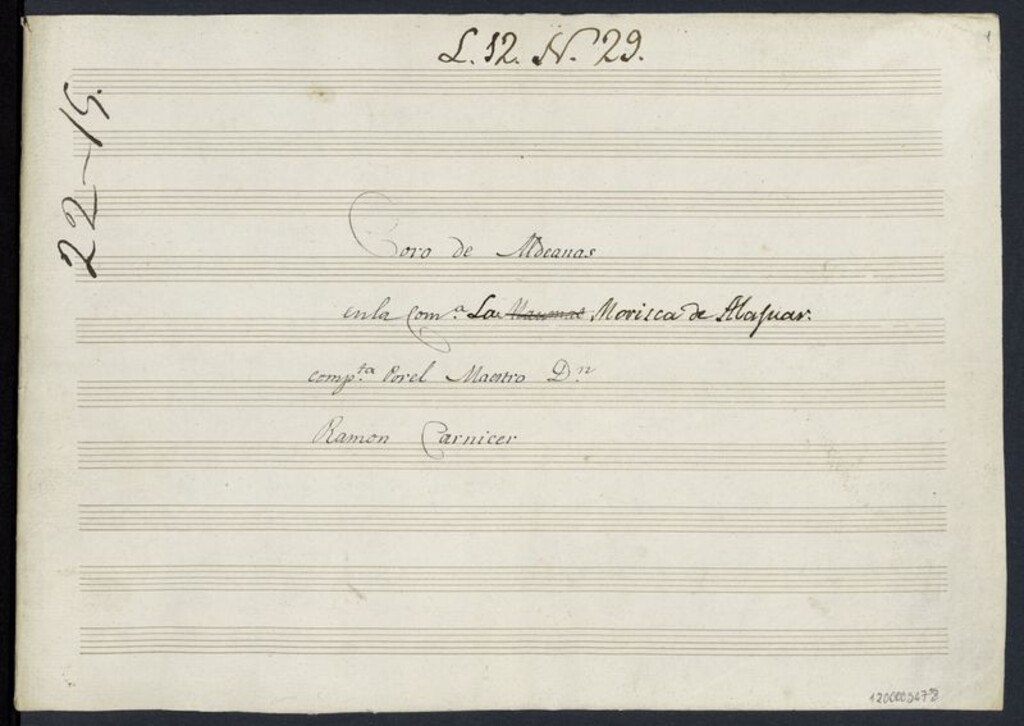 L. 12. N. 29.
22-15.
Coro de Aldeanas
en la Com.ª La Morisca de Alajuar.
comp.ta Por el Maestro D.n
Ramon Carnicer
1